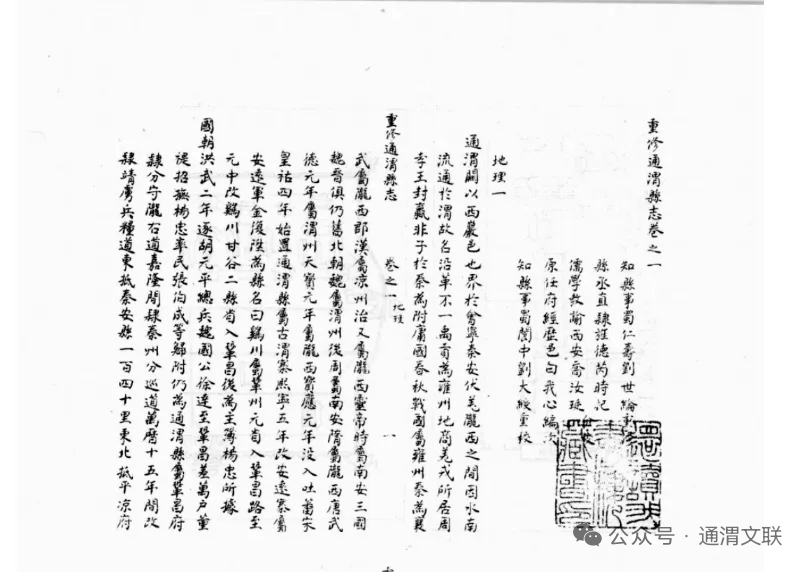 重修通渭縣志卷之一
知縣事蜀仁壽劉世綸
縣丞直隸旌德芮時
儒學教諭西安喬汝
原任府經歷邑白我心編次
知縣事蜀閬中劉大綬重校
地理一
通渭闢以西巖邑也界於會寧秦安伏羌隴西之間因水南
流通於渭故名沿革不一禹貢為雍州地商羌戎所居周
孝王封嬴非子於秦為附庸國春秋戰國屬雍州秦為襄
重修通渭縣志 卷之一 地理 一
武屬隴西郡漢屬凉州治又屬隴西靈帝時屬南安三國
魏晉俱仍舊北朝魏屬渭州後周屬南安隋屬隴西唐武
德元年屬渭州天寶元年屬隴西寶應元年没入吐蕃宋
皇祐四年始置通渭縣屬古渭寨熙寧五年改安遠寨屬
安遠軍金復陞為縣名曰鷄川屬鞏州元省入鞏昌路至
元中改鷄川甘谷二縣省入鞏昌後為主簿楊忠所據
國朝洪武二年逐胡元平總兵魏國公徐達至鞏昌差萬户董
禔招撫楊忠率民張伯成等歸附仍為通渭縣屬鞏昌府
隸分守隴右道嘉隆間隸秦州分巡道萬曆十五年間改
隸靖虜兵糧道東抵秦安縣一百四十里東北抵平凉府
公众号 · 通渭文联